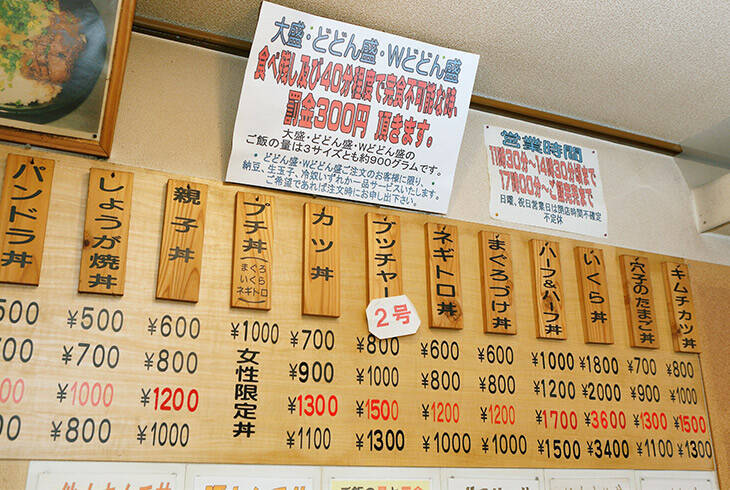 大盛・どどん盛・Wどどん盛
食べ残し及び40分程度で完食不可能な時、
罰金300円 頂きます。
大盛・どどん盛・Wどどん盛の
ご飯の量は3サイズとも約900グラムです。
・どどん盛・Wどどん盛ご注文のお客様に限り、
納豆、生玉子、冷奴いずれか一品サービスいたします。
ご希望であれば注文時にお申し出下さい。
営業時間
11時30分~14時30分頃まで
17時00分~ご飯完売まで
日曜、祝日営業日は閉店時間不確定
不定休
パンドラ丼
しょうが焼丼
親子丼
プチ丼
(まぐろ
いくら
ネギトロ)
カツ丼
ブッチャー
2号
ネギトロ丼
まぐろづけ丼
ハーフ&ハーフ丼
いくら丼
穴子のたまご丼
キムチカツ丼
500 ¥500 ¥600 ¥1000 ¥700 ¥800 ¥600 ¥600 ¥1000 ¥1800 ¥700 ¥800
700 ¥700 ¥800 ¥900 ¥1000 ¥800 ¥800 ¥1200 ¥2000 ¥900 ¥1000
¥1000 ¥1200 ¥1300 ¥1500 ¥1200 ¥1200 ¥1700 ¥3600 ¥1300 ¥1500
800 ¥800 ¥1000 ¥1100 ¥1300 ¥1000 ¥1000 ¥1500 ¥3400 ¥1100 ¥1300
女性限定丼